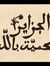 الجزائر
محمية بالله